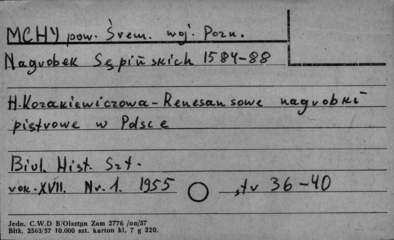 MCHY pow. Śrem. woj. Pozn.
Nagrobek Sępińskich 1584-88
H. Kozakiewiczowa - Renesansowe nagrobki
piętrowe w Polsce
Biul. Hist. Szt.
rok. XVII. Nr. 1. 1955 str 36-40
Jedn. C.W.D B/Olsztyn Zam 2776 /on/57
Bltk. 2563/57 10.000 szt. karton kl. 7 g 220.